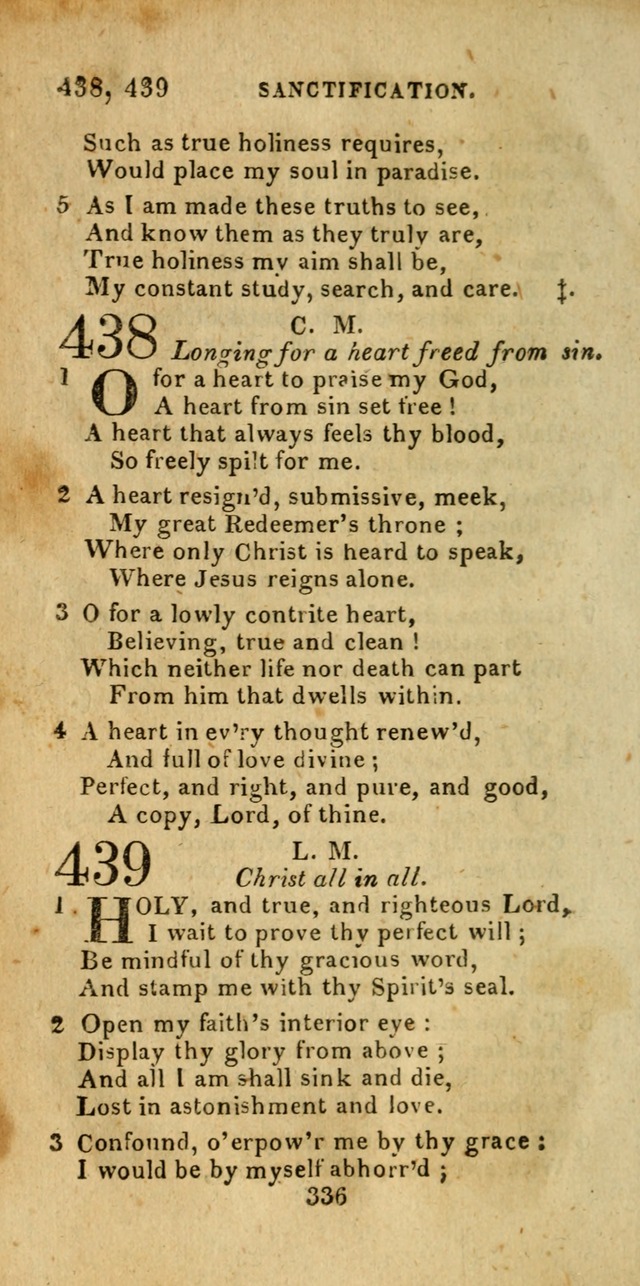 438, 439 SANCTIFICATION.
Such as true holiness requires,
Would place my soul in paradise.
5 As I am made these truths to see,
And know them as they truly are,
True holiness my aim shall be,
My constant study, search, and care. ‡.
438 C. M.
Longing for a heart freed from sin.
1 O for a heart to praise my God,
A heart from sin set free !
A heart that always feels thy blood,
So freely spilt for me.
2 A heart resign'd, submissive, meek,
My great Redeemer's throne ;
Where only Christ is heard to speak,
Where Jesus reigns alone.
3 O for a lowly contrite heart,
Believing, true and clean !
Which neither life nor death can part
From him that dwells within.
4 A heart in ev'ry thought renew'd,
And full of love divine ;
Perfect, and right, and pure, and good,
A copy, Lord, of thine.
439 L. M.
Christ all in all.
1 HOLY, and true, and righteous Lord,
I wait to prove thy perfect will ;
Be mindful of thy gracious word,
And stamp me with thy Spirit's seal.
2 Open my faith's interior eye :
Display thy glory from above ;
And all I am shall sink and die,
Lost in astonishment and love.
3 Confound, o'erpow'r me by thy grace :
I would be by myself abhorr'd ;
336